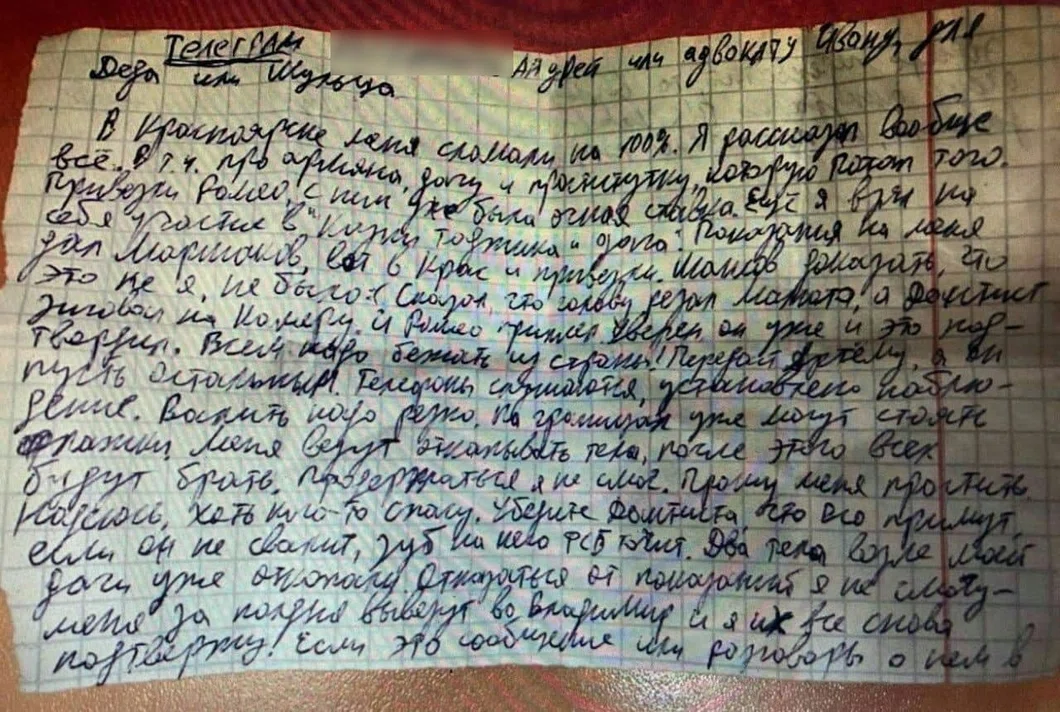 Телеграм Андрей или адвокату Ивану, для
Деда или Шульца
В Красноярске меня сломали на 100%. Я рассказал вообще
всё. В т.ч. про армяна, дачу и проститутку, которую потом того.
Привезли Ромео, с ним уже была очная ставка. Ещё я взял на
себя участие в "Казни таджика и дага". Показания на меня
дал Маршаков, вот в Крас и привезли. Шансов доказать, что
это не я, не было :( Сказал, что голову резал Мамота, а Дантист
зиговал на камеру. И Ромео уверен он уже и это под-
твердил. Всем надо бежать из страны! Передай Артёму, а он
пусть остальным. Телефоны слушаются, установлено наблю-
дение. Валить надо резко. На границах уже могут стоять
Меня везут откапывать тела, после этого всех
будут брать. Продержаться я не смог. Прошу меня простить.
Надеюсь, хоть кого-то спасу. Уберите Дантиста, что его примут,
если он не свалит, зуб на него ФСБ точит. Два тела возле моей
дачи уже откопали. Отказаться от показаний я не смогу –
меня за полдня вывезут во Владимир и я их все снова
подтвержу! Если это сообщение или разговоры о нём в